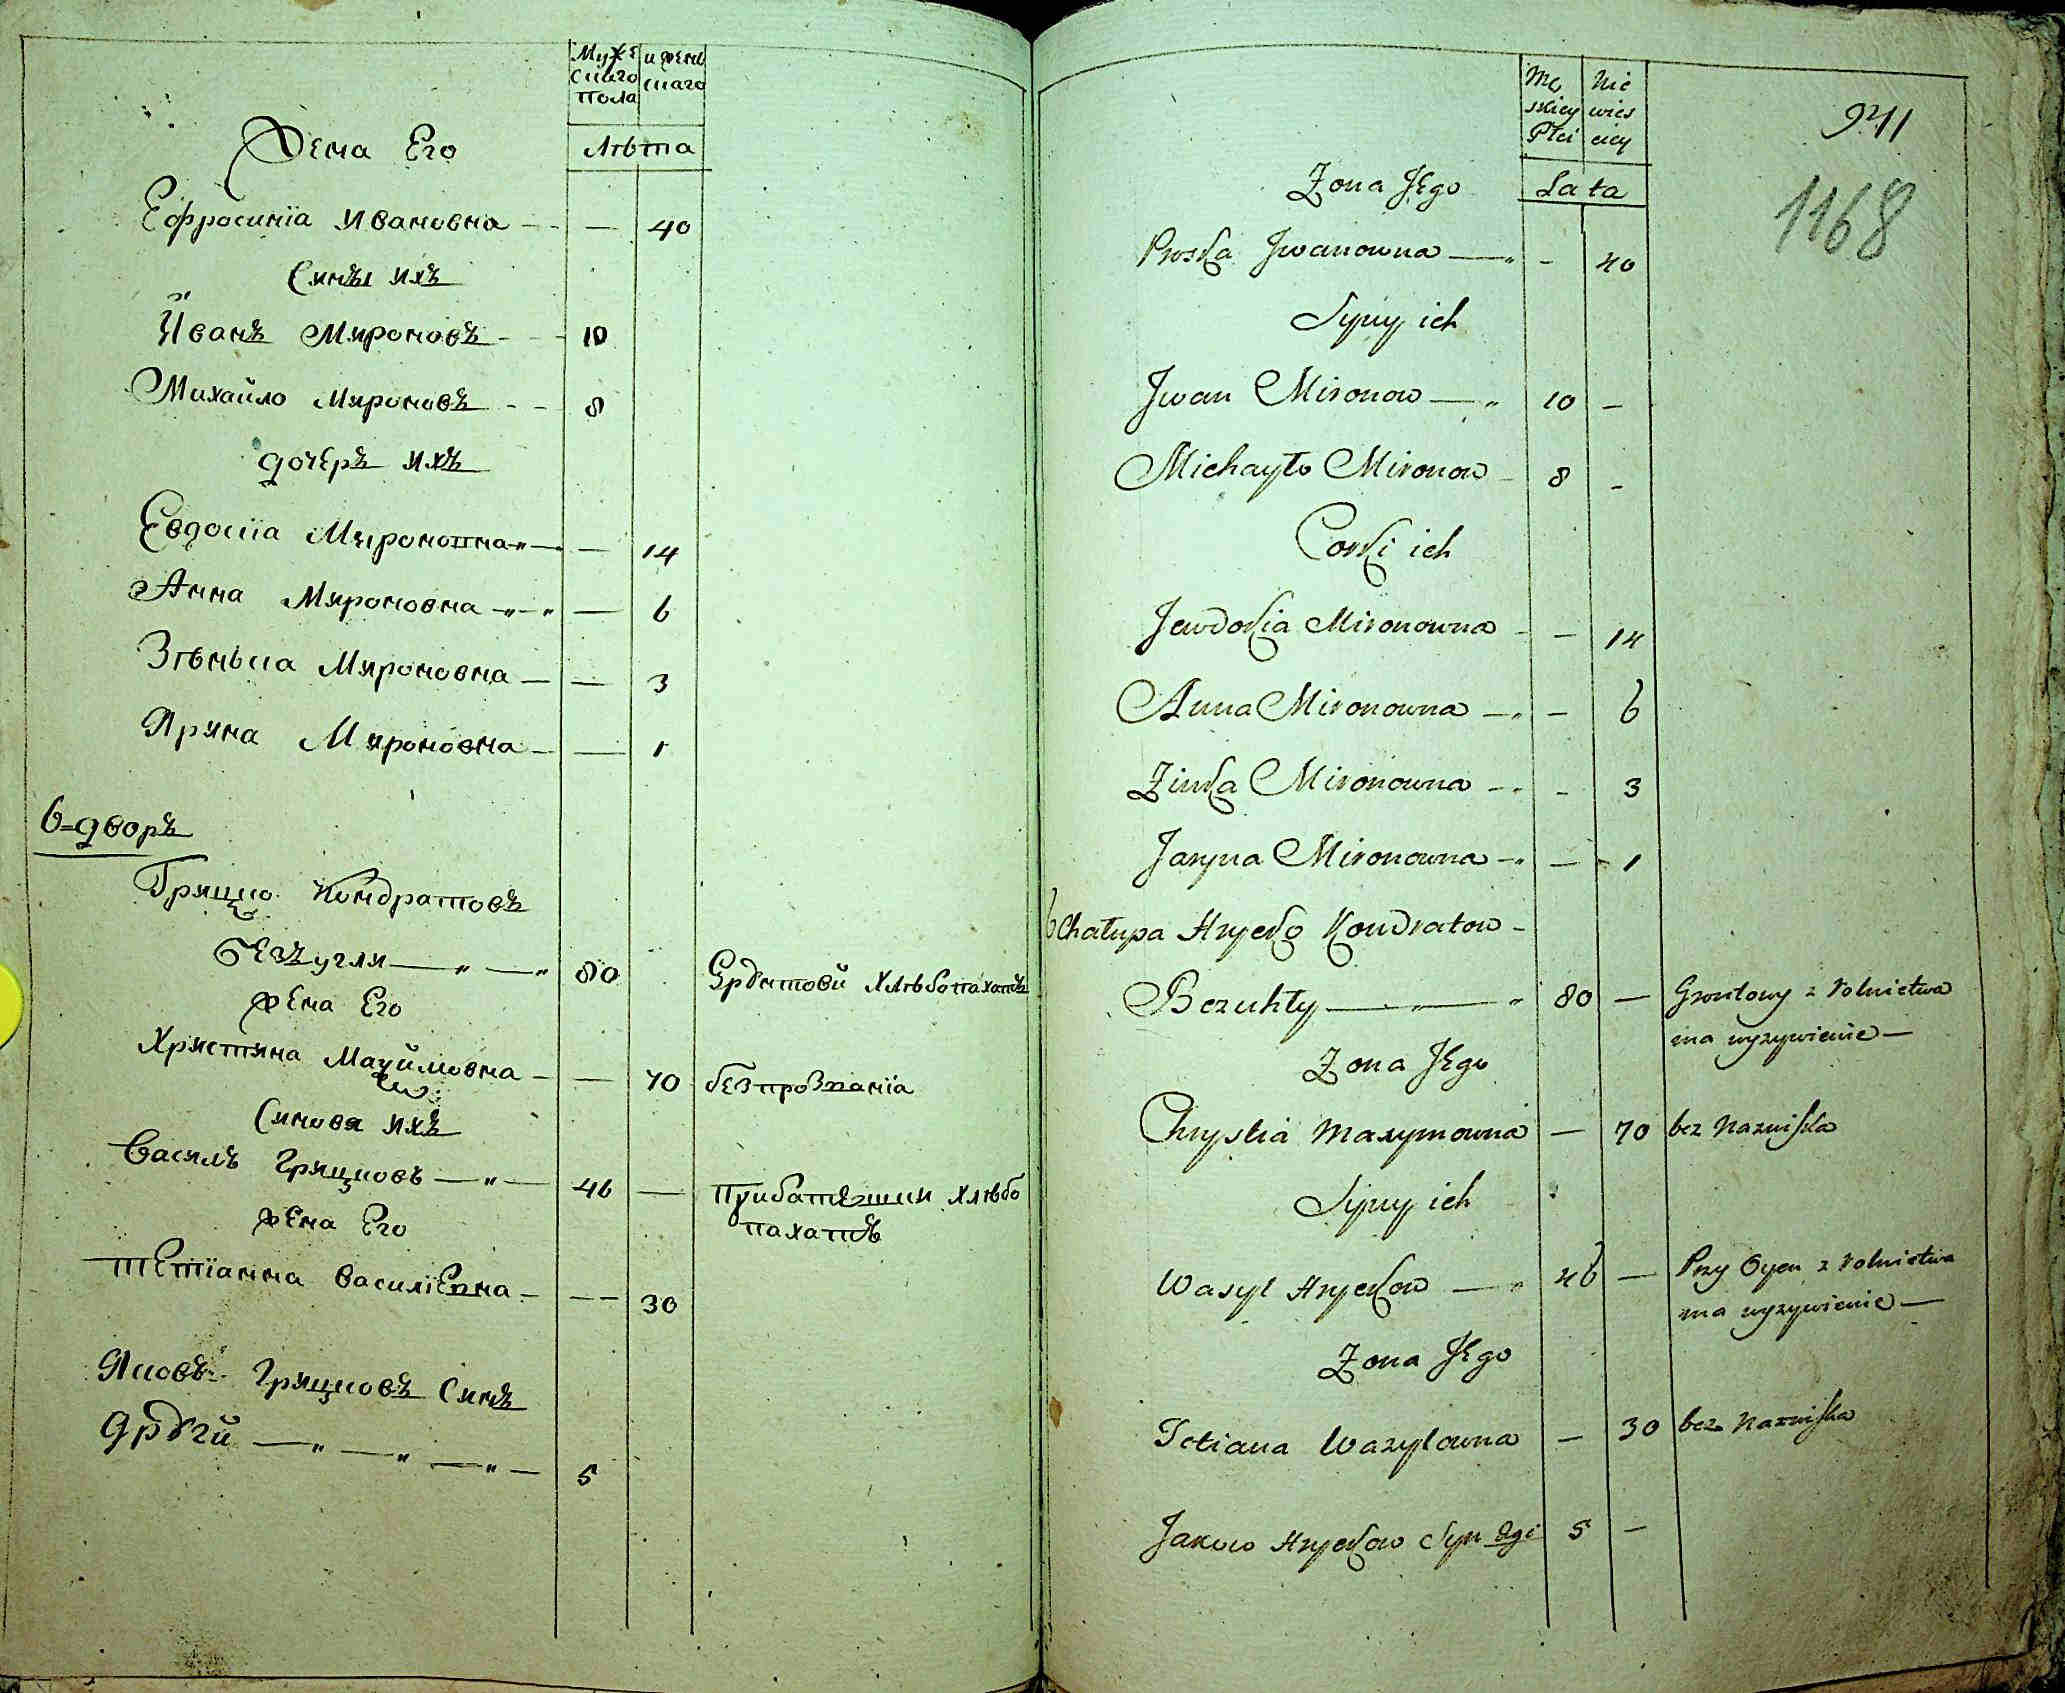 Мужескаго пола
и женскаго
Лѣта
Жена Его
Ефросинїа Ивановна — — 40
Сины ихъ
Иванъ Мироновъ — 10
Михайло Мироновъ — 8
дочеръ ихъ
Евдокїа Мироновна — — 14
Анна Мироновна — — 6
Зѣнька Мироновна — — 3
Ярина Мироновна — — 1
6=дворъ
Грицко Кондратовъ
безугли — " — " 80 Грунтовй хлѣбопахатъ
жена Его
Христина Мацимовна — — 70 безпрозванїа
Синовя ихъ
Василъ Грицковъ — " — 46 — прибатецки хлѣбо
пахатъ
жена Его
тетїанна василїевна — — 30
Яковъ Грицковъ Синъ
другй — " — " — " — 5
Męskiey Płci
Niewiesciey
Lata
941
1168
Zona Jego
Proska Jwanowna — " - 40
Syny ich
Jwan Mironow — " 10 —
Michayło Mironow - 8 -
Corki ich
Jewdokia Mironowna - — 14
Anna Mironowna — " — 6
Zinka Mironowna — " - 3
Jaryna Mironowna — " — 1
6 Chałupa Hryćko Kondratow -
Bezuhły — " — " 80 — Gruntowy z rolnictwa
ma wyzywienie —
Zona Jego
Chrystia Maxymowna — 70 bez Nazwiska
Syny ich
Wasyl Hryćkow — " 46 — Przy Oycu z rolnictwa
ma wyzywienie —
Zona Jego
Tetiana Wazylowna — 30 bez Nazwiska
Jakow Hryćkow Syn 2gi 5 —